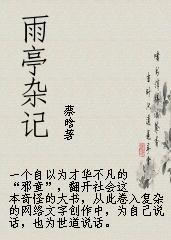 雨亭杂记
蔡晗著
一个自以为才华不凡的
“邪童”，翻开社会这
本奇怪的大书，从此卷入复杂
的网络文字创作中，为自己说
话，也为世道说话。